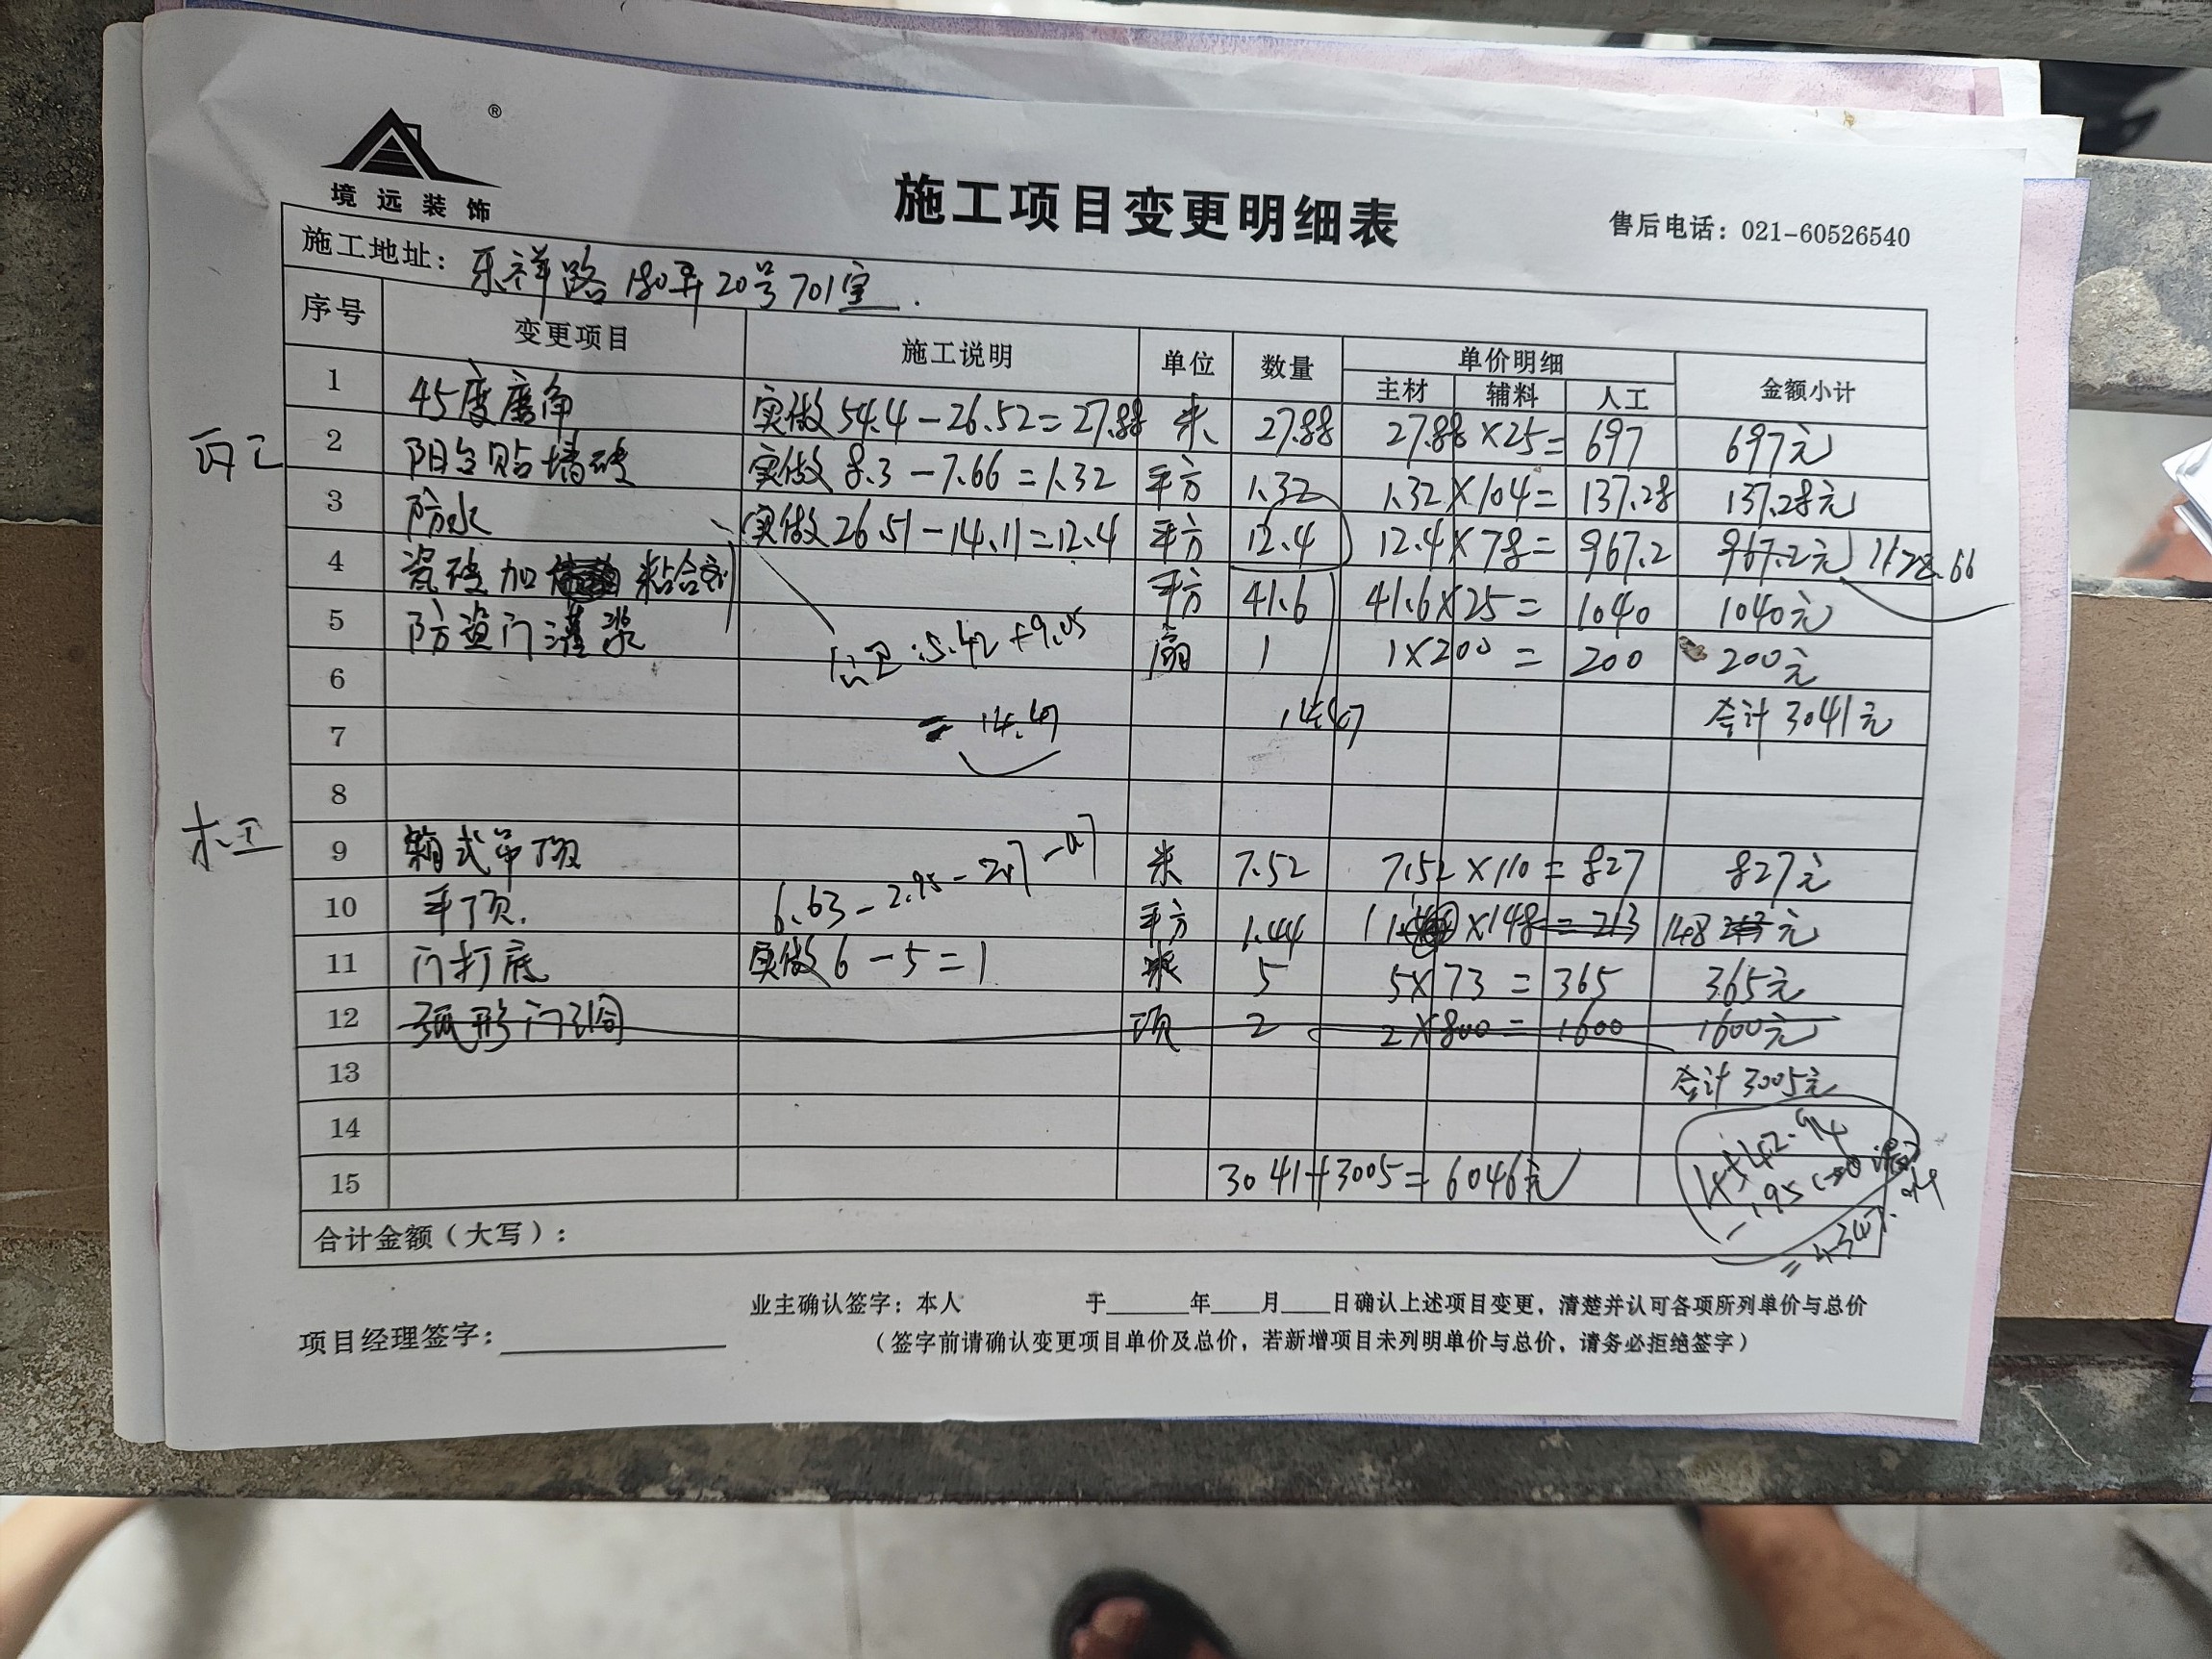 ®
境远装饰
施工项目变更明细表
售后电话：021-60526540
施工地址： 乐祥路180弄20号701室.
序号 变更项目 施工说明 单位 数量 单价明细 金额小计
主材 辅料 人工
1 45度磨角 实做54.4-26.52=27.88 米 27.88 27.88×25= 697 697元
瓦工
2 阳台贴墙砖 实做8.3-7.66=1.32 平方 1.32 1.32×104= 137.28 137.28元
3 防水 实做26.51-14.11=12.4 平方 12.4 12.4×78= 967.2 967.2元 1128.66
4 瓷砖加 粘合剂 平方 41.6 41.6×25= 1040 1040元
5 防盗门灌浆 :5.42+9.05 扇 1 1×200= 200 200元
6 =14.47 14.47 合计3041元
7
8
木工
9 箱式吊顶 米 7.52 7.52×110=827 827元
10 平顶. 6.63-2.95- 平方 1.44 ×148=213 148 213元
11 门打底 实做6-5=1 5 5×73=365 365元
12 弧形门洞 项 2 2×800=1600 1600元
13 合计3005元
14
15 3041+3005=6046元
合计金额（大写）：
业主确认签字：本人 于 年 月 日确认上述项目变更，清楚并认可各项所列单价与总价
项目经理签字：
（签字前请确认变更项目单价及总价，若新增项目未列明单价与总价，请务必拒绝签字）